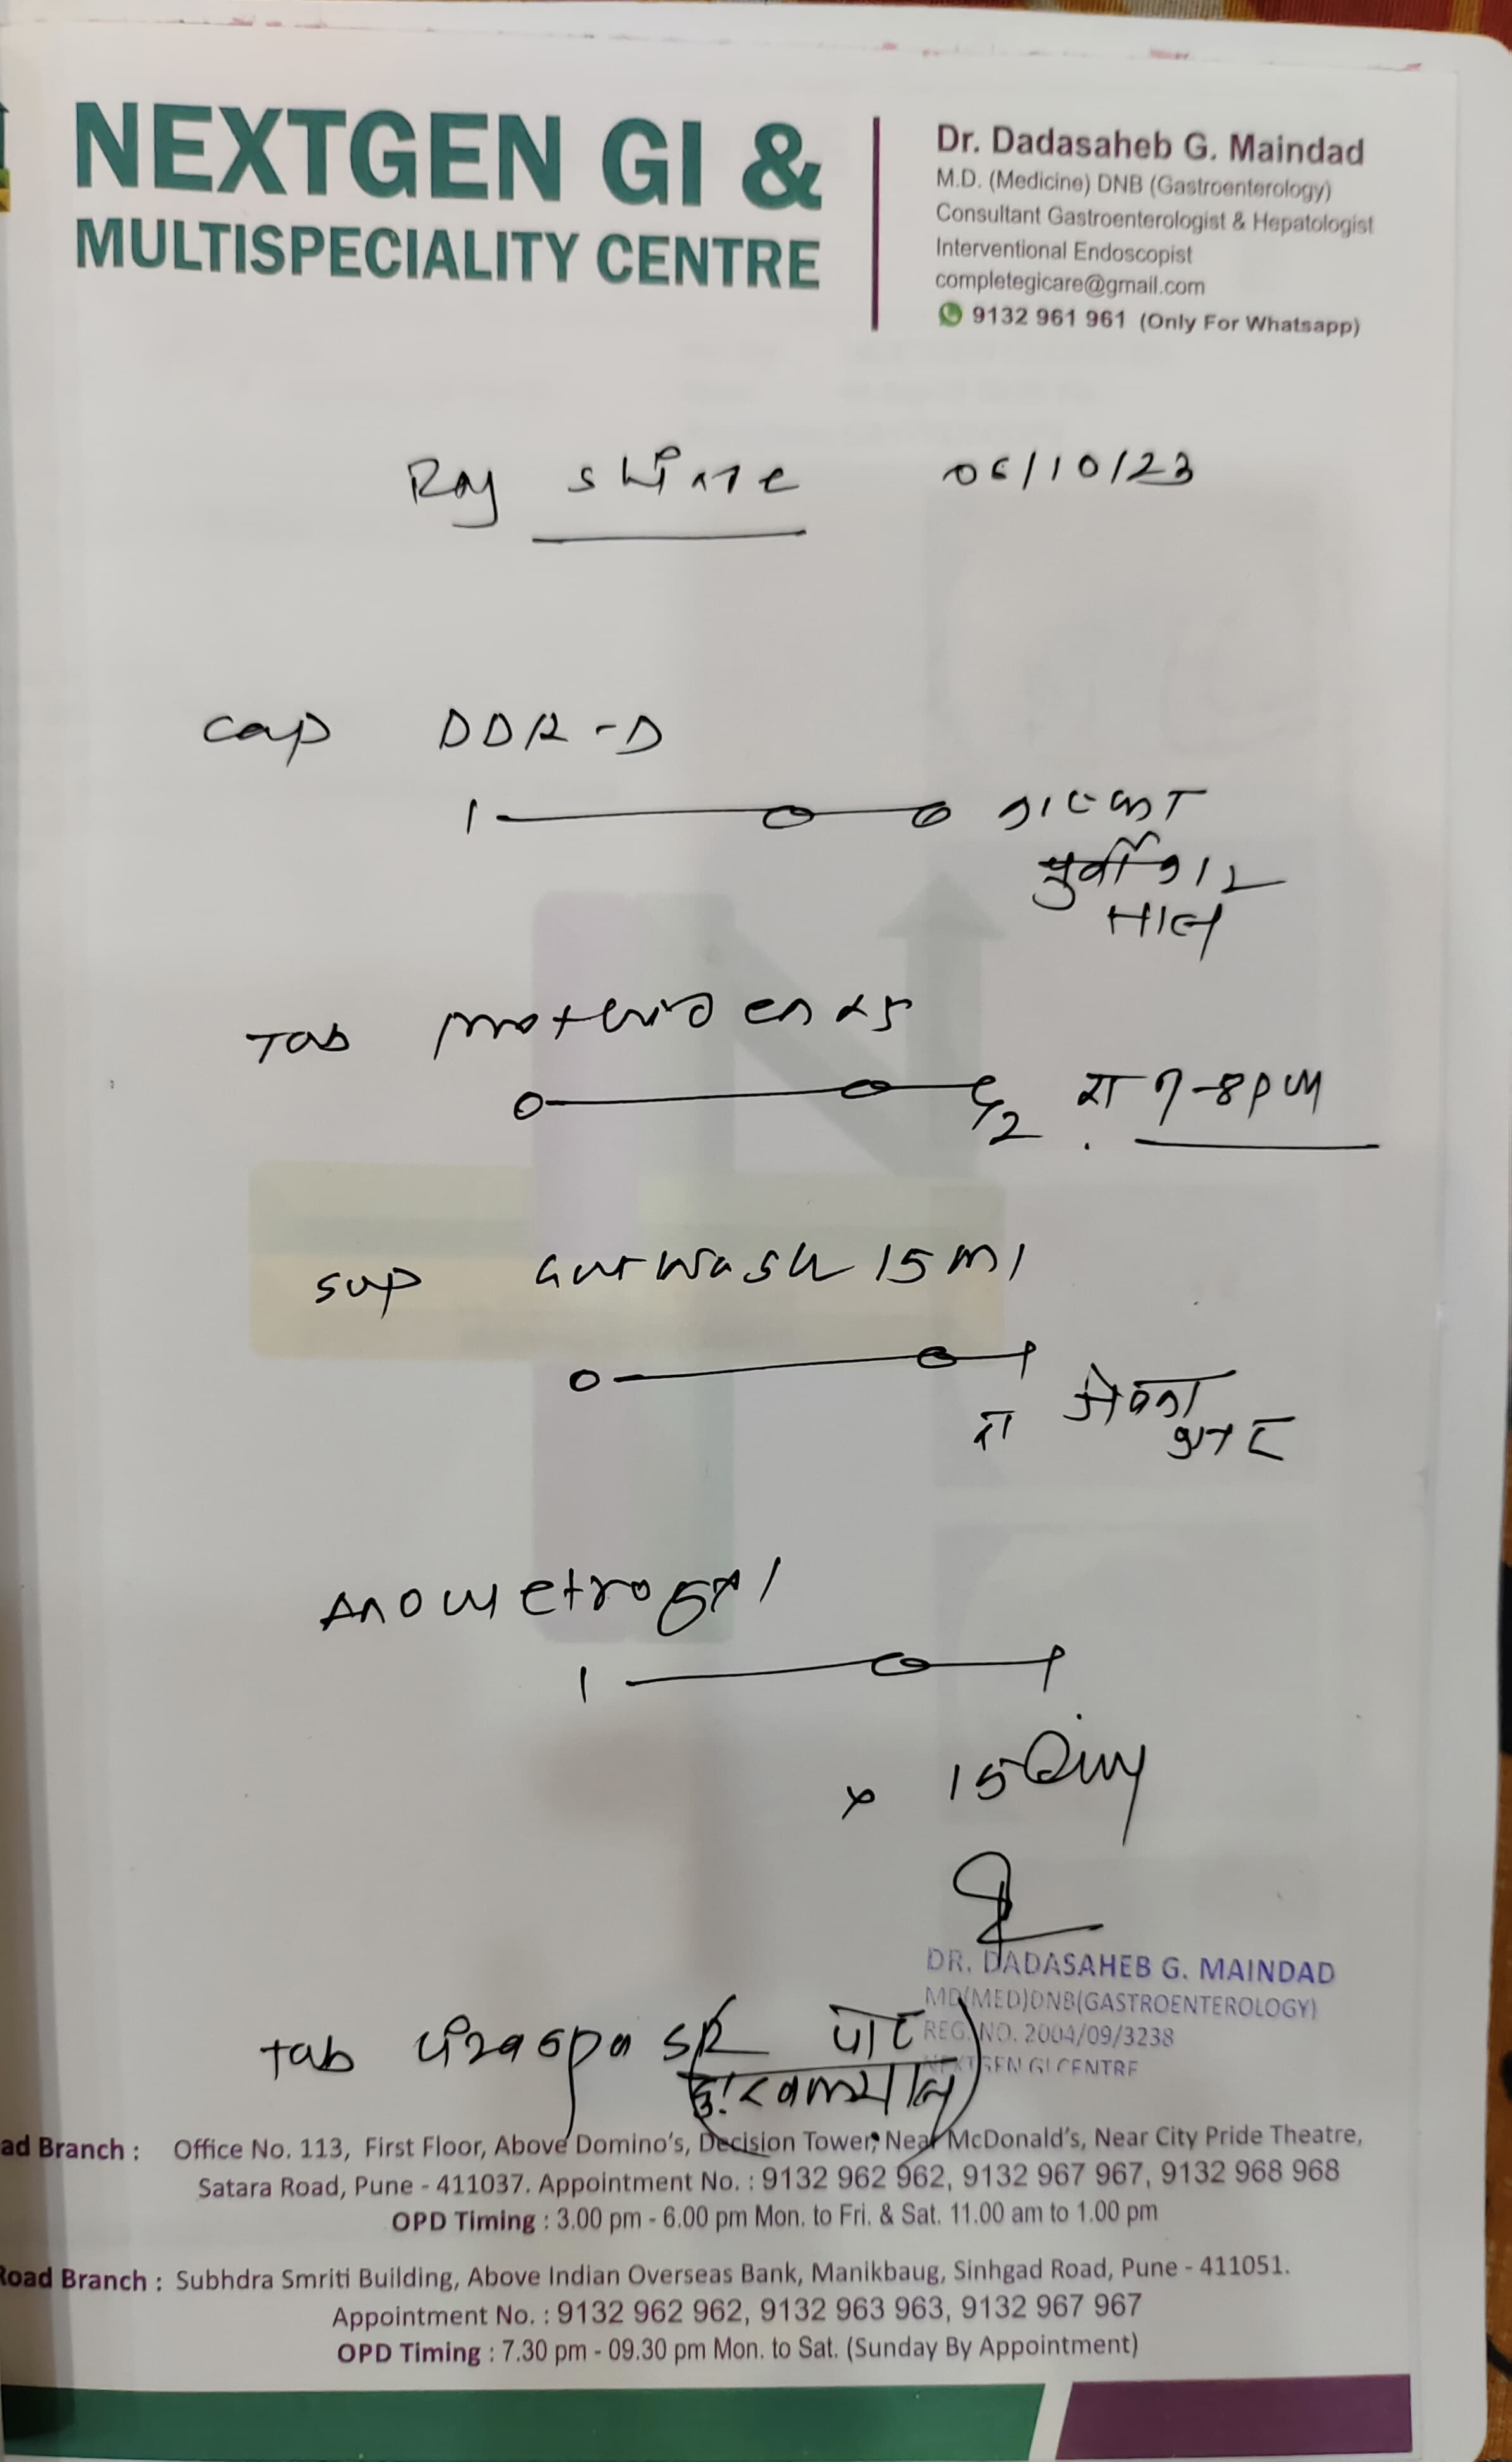 NEXTGEN GI &
MULTISPECIALITY CENTRE
Dr. Dadasaheb G. Maindad
M.D. (Medicine) DNB (Gastroenterology)
Consultant Gastroenterologist & Hepatologist
Interventional Endoscopist
completegicare@gmail.com
9132 961 961 (Only For Whatsapp)
Raj Shinre 06/10/23
Cap DDR-D
1 — 0 — 0
Tab 25
0 — 0 — 1/2 रा 7-8pm
Syp Gutwash 15ml
0 — 0 — 1
रा
Anometrogyl
1 — 0 — 1
x 15 Day
DR. DADASAHEB G. MAINDAD
MD(MED)DNB(GASTROENTEROLOGY)
REG. NO. 2004/09/3238
NEXTGEN GI CENTRE
Tab SR पोट
ad Branch : Office No. 113, First Floor, Above Domino's, Decision Tower, Near McDonald's, Near City Pride Theatre,
Satara Road, Pune - 411037. Appointment No. : 9132 962 962, 9132 967 967, 9132 968 968
OPD Timing : 3.00 pm - 6.00 pm Mon. to Fri. & Sat. 11.00 am to 1.00 pm
Road Branch : Subhdra Smriti Building, Above Indian Overseas Bank, Manikbaug, Sinhgad Road, Pune - 411051.
Appointment No. : 9132 962 962, 9132 963 963, 9132 967 967
OPD Timing : 7.30 pm - 09.30 pm Mon. to Sat. (Sunday By Appointment)